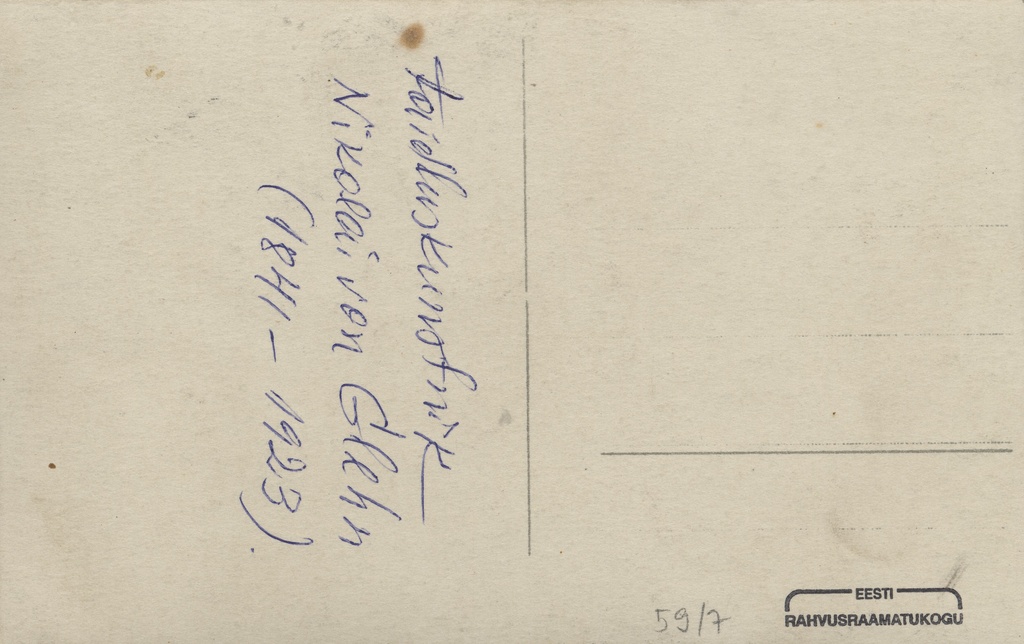 taidluskunstnik
Nikolai von Glehn
(1841 – 1923).
59/7
EESTI
RAHVUSRAAMATUKOGU